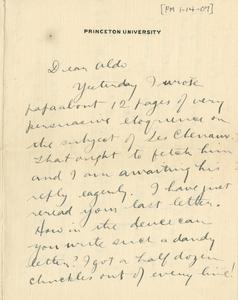 [PM 1-14-07]
PRINCETON UNIVERSITY
Dear Aldo
Yesterday I wrote
papa about 12 pages of very
persuasive eloquence on
the subject of Les Cheneaux.
That ought to fetch him
and I am awaiting his
reply eagerly. I have just
reread your last letter.
How in the deuce can
you write such a dandy
letter? I got a half dozen
chuckles out of every line!